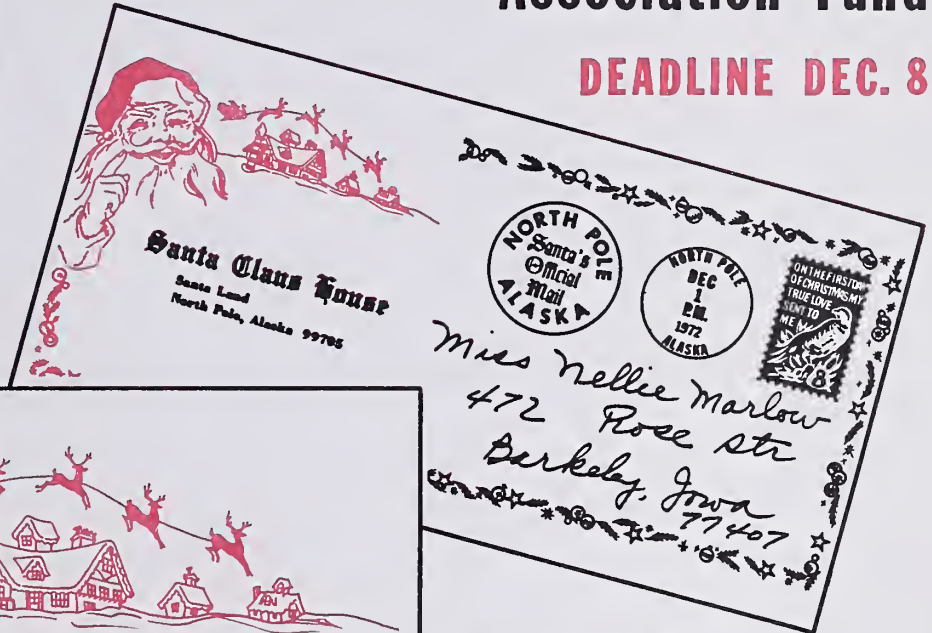 Association Fund
DEADLINE DEC. 8
Santa Claus House
Santa Land
North Pole, Alaska 99705
NORTH POLE
Santa's
Official
Mail
ALASKA
NORTH POLE
DEC
1
PM.
1972
ALASKA
ON THE FIRST DAY
OF CHRISTMAS MY
TRUE LOVE
SENT TO
ME
8
Miss Nellie Marlow
472 Rose Str
Barkeley, Iowa
77407